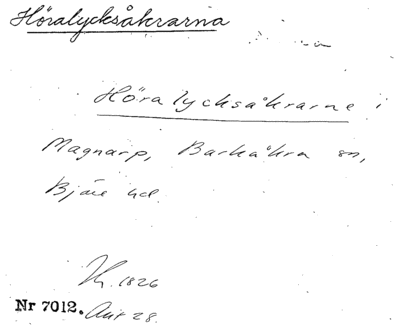 Höralycksåkrarna
Höralycksåkrarne i
Magnarp, Barkåkra sn,
Bjäre hd.
1826
Nr 7012. Akt 28.